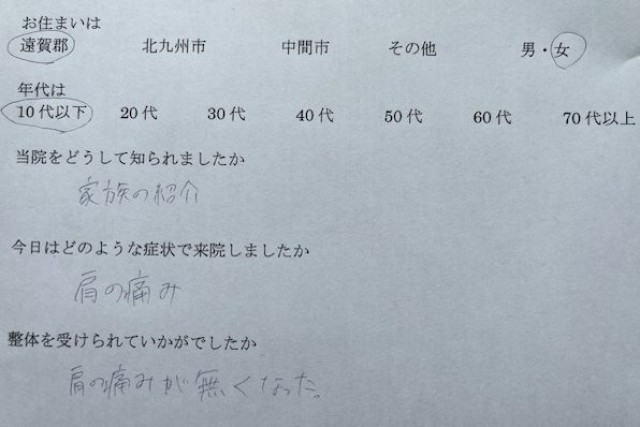 お住まいは
遠賀郡 北九州市 中間市 その他 男・女
年代は
10代以下 20代 30代 40代 50代 60代 70代以上
当院をどうして知られましたか
家族の紹介
今日はどのような症状で来院しましたか
肩の痛み
整体を受けられていかがでしたか
肩の痛みが無くなった。